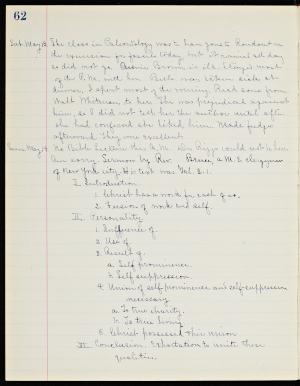 62
Sat. May 13 The class in Paleontology was to have gone to Rondout on
the excursion for fossils today, but it rained all day
so did not go. Bessie Brown is ill. I kept most
of the P.M. with her. Both were taken sick at
dinner. I spent most of the evening. Read some from
Walt Whitman to her. She was prejudiced against
him, so I did not tell her the author until after
she had confessed she liked him. Made fudge
afterward. They were excellent.
Sun. May 14 No Bible Lecture this A.M. Dr. Riggs could not be here.
Am sorry. Sermon by Rev. Bruce, a M.E. clergyman
of New York city. His text was Gal. 2:1.
I. Introduction
1. Christ has a work for each of us.
2. Fusion of work and self.
II. Personality
1. Influence of
2. Use of
3. Result of
a. Self prominence
b. Self suppression
4. Union of self prominence and self-suppression
necessary
a. To true charity.
b. To true living
5. Christ possessed this union
III. Conclusion. Exhortation to unite these
qualities.